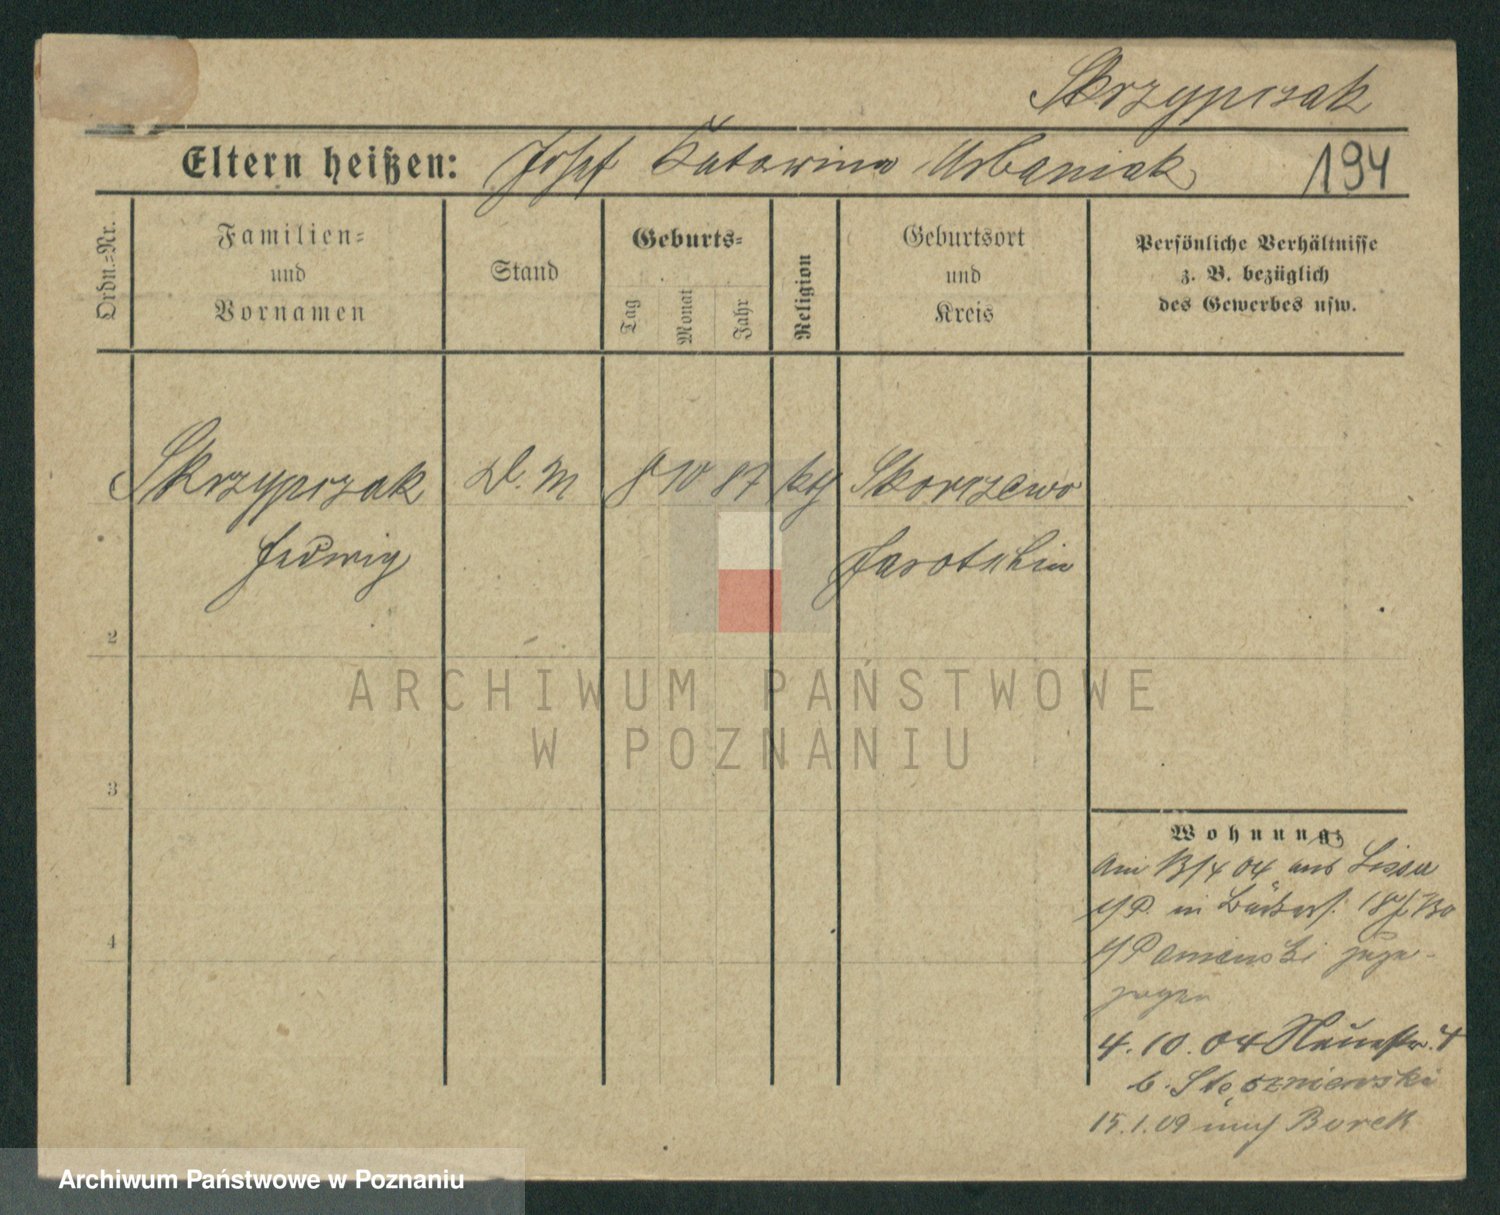 Skrzypczak
Eltern heißen: Josef Katarina Urbaniak 194
Ordn.=Nr.
Familien=
und
Vornamen
Stand
Geburts=
Tag
Monat
Jahr
Religion
Geburtsort
und
Kreis
Persönliche Verhältnisse
z. B. bezüglich
des Gewerbes usw.
Skrzypczak D. M 8 10 87 kth Skorczewo
Hedwig Jarotschin
2
3
4
Wohnung:
Am 13/4 04 aus Lissa
i/P. in
zuge-
zogen
4. 10. 04 Neuestr. 4
b. Stęszniewski
15.1.09 nach Borek
ARCHIWUM PAŃSTWOWE
W POZNANIU
Archiwum Państwowe w Poznaniu